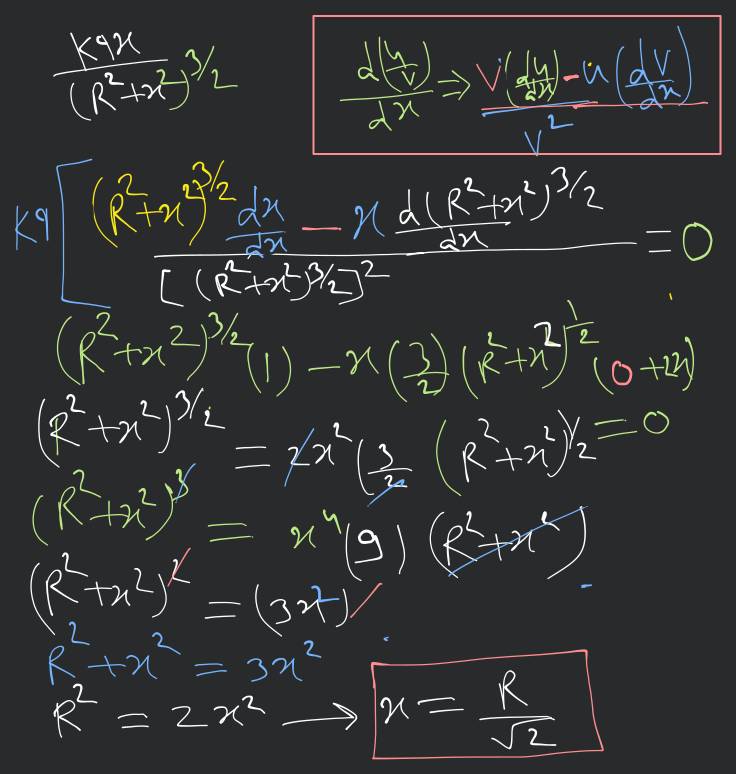 kqx/(R²+x²)^3/2
d(u/v)/dx ⇒ v(du/dx) - u(dv/dx) / v²
kq[ (R²+x²)^3/2 dx/dx - x d(R²+x²)^3/2/dx / [(R²+x²)^3/2]² = 0
(R²+x²)^3/2 (1) - x(3/2)(R²+x²)^1/2 (0+2x) = 0
(R²+x²)^3/2 = 2x²(3/2 (R²+x²)^1/2
(R²+x²)^3 = x⁴(9) (R²+x²)
(R²+x²)² = (3x²)²
R²+x² = 3x²
R² = 2x² → x = R/√2